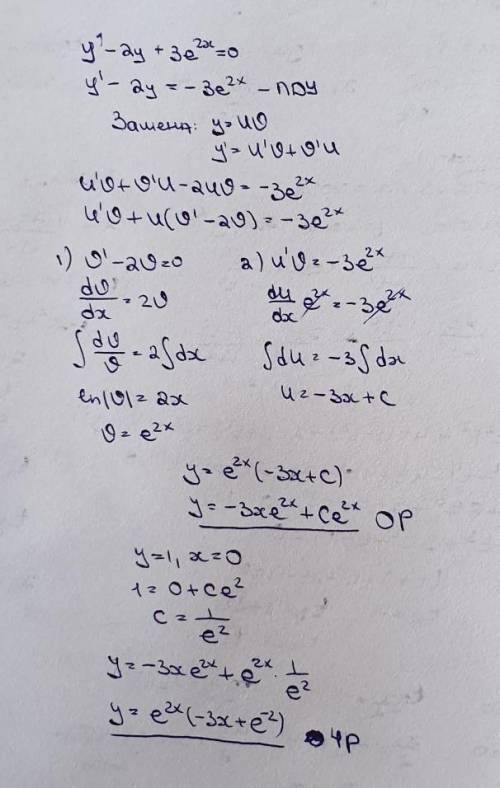 y' - 2y + 3e^{2x} = 0
y' - 2y = -3e^{2x} - ЛДУ
Замена: y = uϑ
y' = u'ϑ + ϑ'u
u'ϑ + ϑ'u - 2uϑ = -3e^{2x}
u'ϑ + u(ϑ' - 2ϑ) = -3e^{2x}
1) ϑ' - 2ϑ = 0
dϑ/dx = 2ϑ
∫ dϑ/ϑ = 2∫dx
ln|ϑ| = 2x
ϑ = e^{2x}
2) u'ϑ = -3e^{2x}
du/dx e^{2x} = -3e^{2x}
∫du = -3∫dx
u = -3x + c
y = e^{2x}(-3x + c)
y = -3xe^{2x} + ce^{2x} ОР
y = 1, x = 0
1 = 0 + ce^2
c = 1/e^2
y = -3xe^{2x} + e^{2x} · 1/e^2
y = e^{2x}(-3x + e^{-2}) ЧР